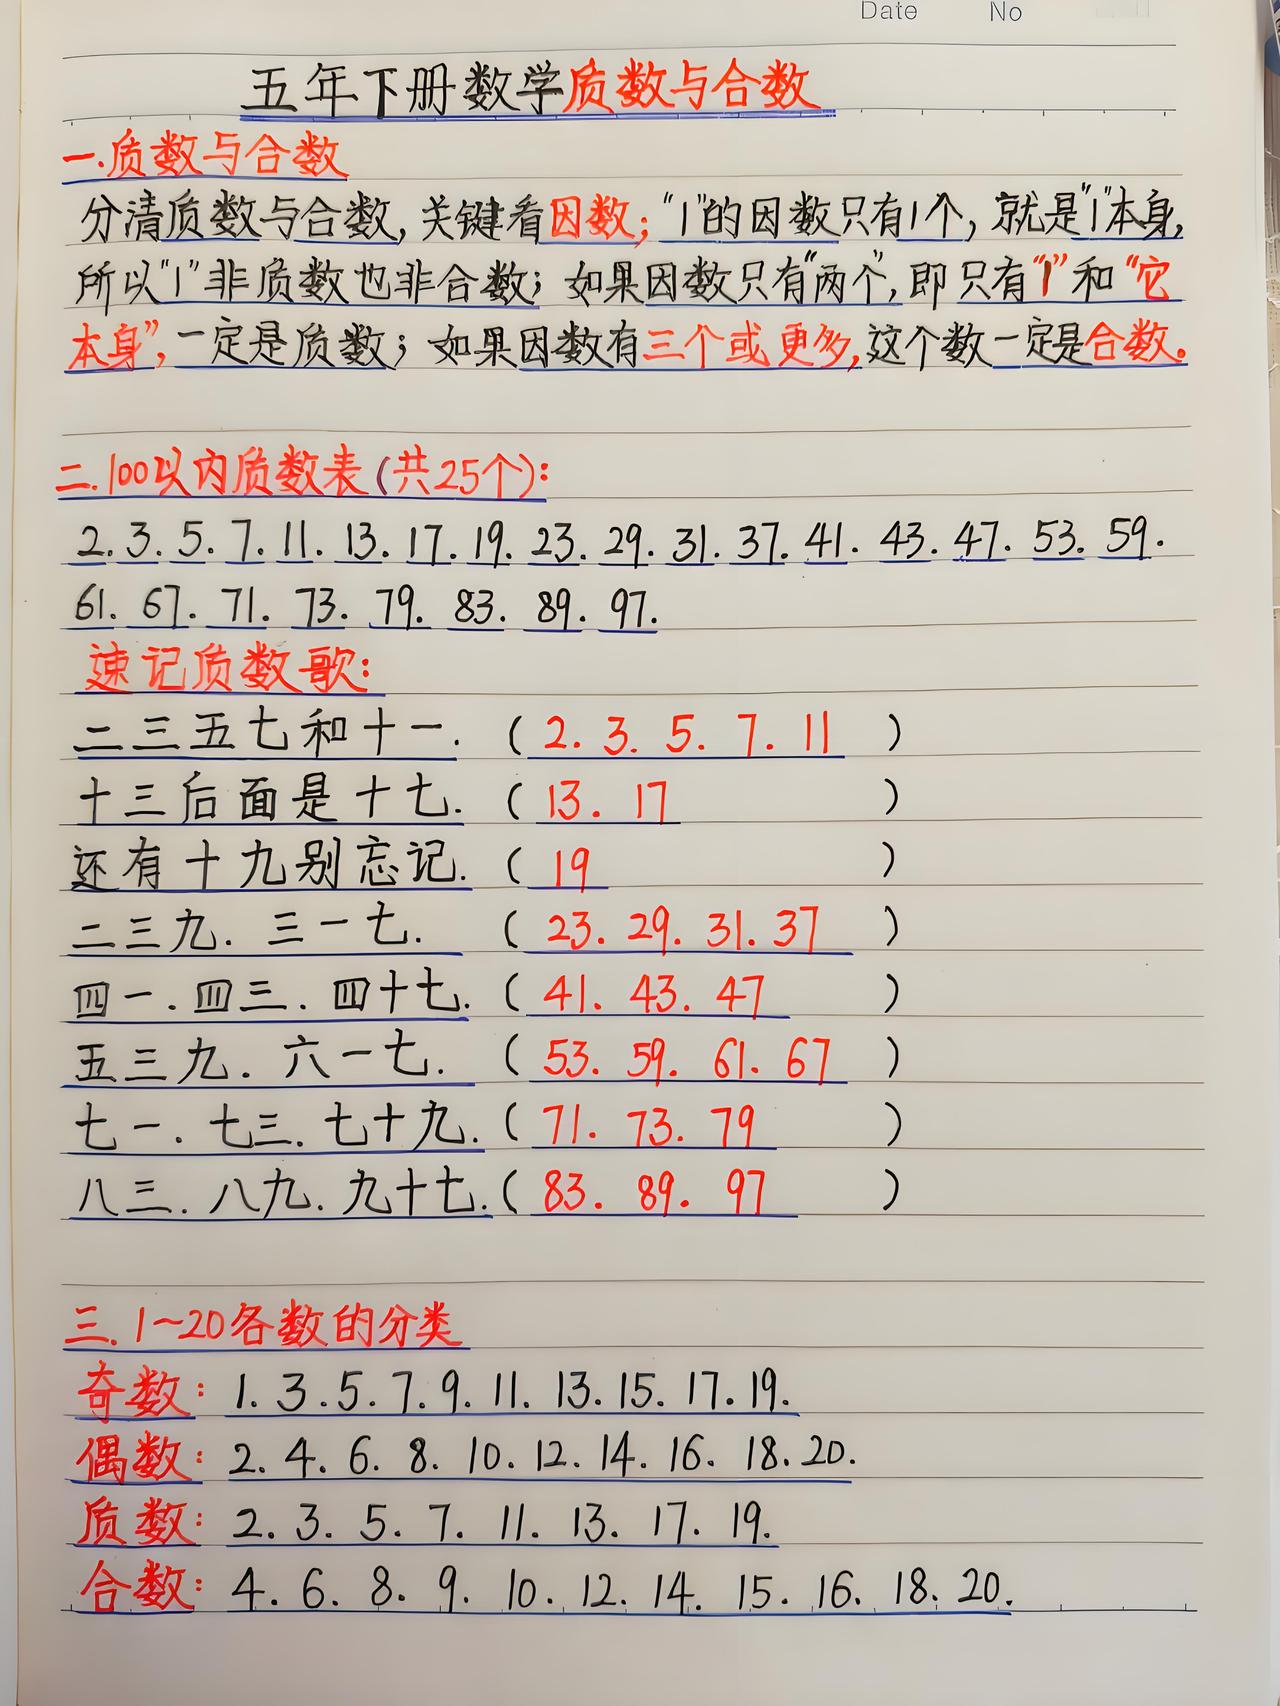 Date No
五年下册数学质数与合数
一.质数与合数
分清质数与合数,关键看因数;“1”的因数只有1个,就是“1”本身,
所以“1”非质数也非合数;如果因数只有“两个”,即只有“1”和“它
本身”,一定是质数;如果因数有三个或更多,这个数一定是合数。
二.100以内质数表(共25个):
2.3.5.7.11.13.17.19.23.29.31.37.41.43.47.53.59.
61.67.71.73.79.83.89.97.
速记质数歌:
二三五七和十一.(2.3.5.7.11)
十三后面是十七.(13.17)
还有十九别忘记.(19)
二三九.三一七.(23.29.31.37)
四一.四三.四十七.(41.43.47)
五三九.六一七.(53.59.61.67)
七一.七三.七十九.(71.73.79)
八三.八九.九十七.(83.89.97)
三.1~20各数的分类
奇数:1.3.5.7.9.11.13.15.17.19.
偶数:2.4.6.8.10.12.14.16.18.20.
质数:2.3.5.7.11.13.17.19.
合数:4.6.8.9.10.12.14.15.16.18.20.